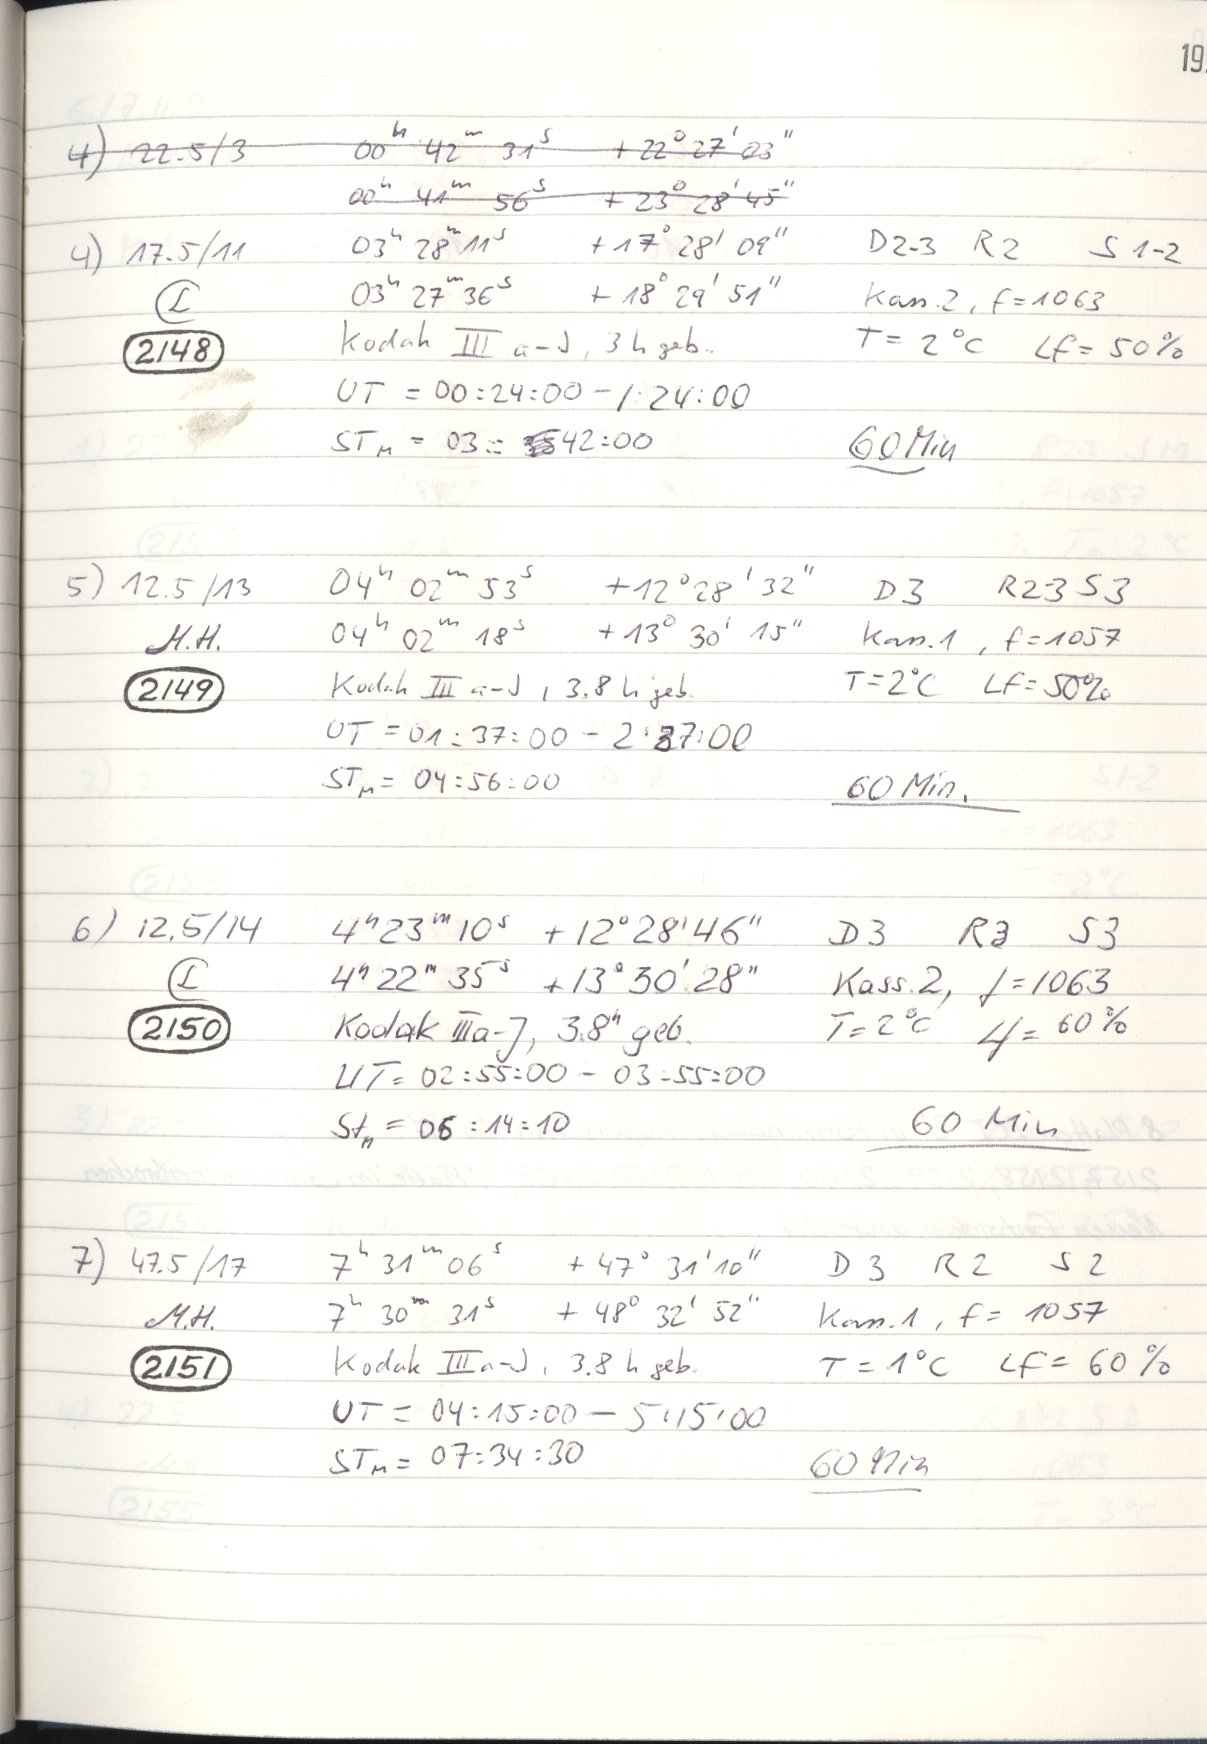 19
4) 22.5/3 00h 42m 31s +22° 27' 03"
00h 41m 56s +23° 28' 45"
4) 17.5/11 03h 28m 11s +17° 28' 09" D2-3 R2 S 1-2
03h 27m 36s +18° 29' 51" Kass.2, f=1063
2148 Kodak III a-J, 3h geb. T = 2°C LF = 50%
UT = 00:24:00 - 1:24:00
STM = 03: 42:00 60 Min
5) 12.5/13 04h 02m 53s +12° 28' 32" D3 R23 S3
M.H. 04h 02m 18s +13° 30' 15" Kass.1, f=1057
2149 Kodak III a-J, 3.8 h geb. T=2°C LF=50%
UT = 01:37:00 - 2:37:00
STM = 04:56:00 60 Min.
6) 12.5/14 4h 23m 10s +12° 28' 46" D3 R3 S3
4h 22m 35s +13° 30' 28" Kass.2, f=1063
2150 Kodak IIIa-J, 3.8h geb. T=2°C Lf= 60%
UT= 02:55:00 - 03:55:00
STM = 06:14:10 60 Min
7) 47.5/17 7h 31m 06s +47° 31' 10" D3 R2 S2
M.H. 7h 30m 31s +48° 32' 52" Kass.1, f= 1057
2151 Kodak IIIa-J, 3.8 h geb. T = 1°C LF= 60%
UT = 04:15:00 - 5:15:00
STM = 07:34:30 60 Min